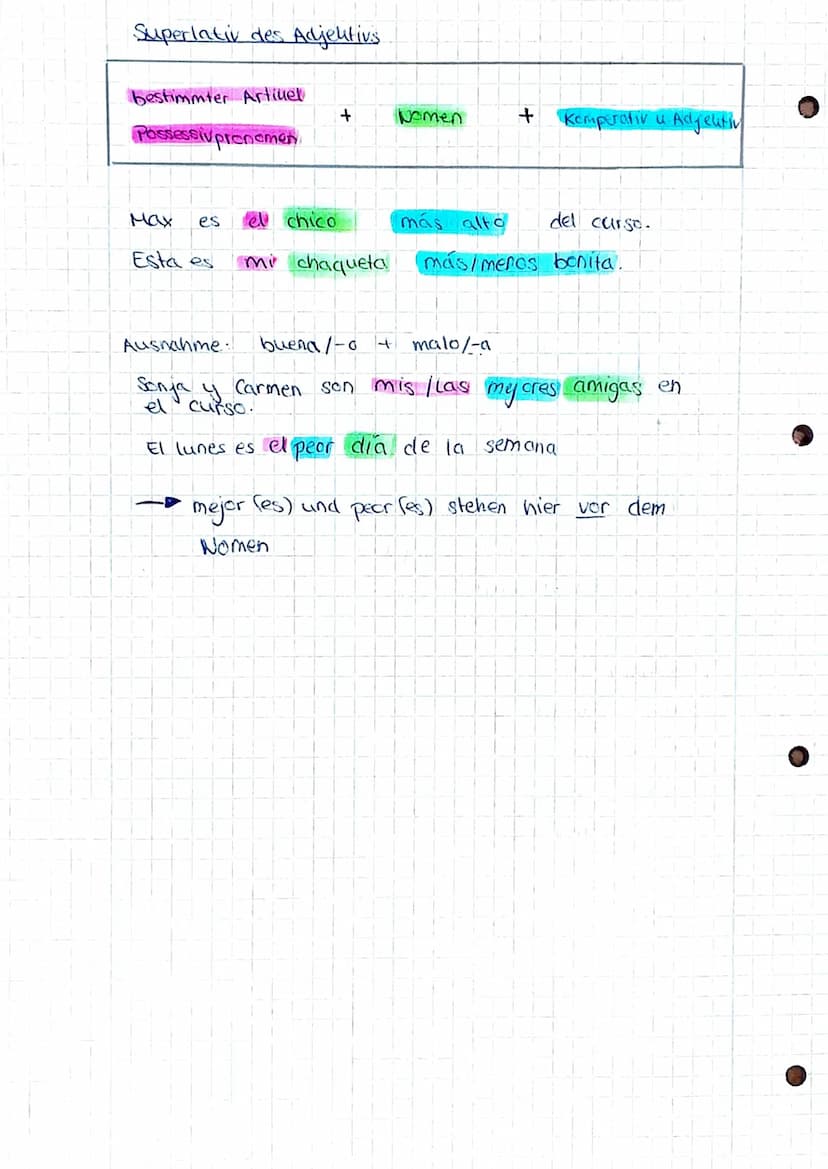 Superlativ des Adjektivs
bestimmter Artikel
Possessivpronomen
+ Nomen + Komperativ u Adjektiv
Max es el chico más alto del curso.
Esta es mi chaqueta más/menos bonita.
Ausnahme: buena/-o + malo/-a
Sonja y Carmen son mis/las mejores amigas en
el curso.
El lunes es el peor día de la semana
→ mejor(es) und peor(es) stehen hier vor dem
Nomen